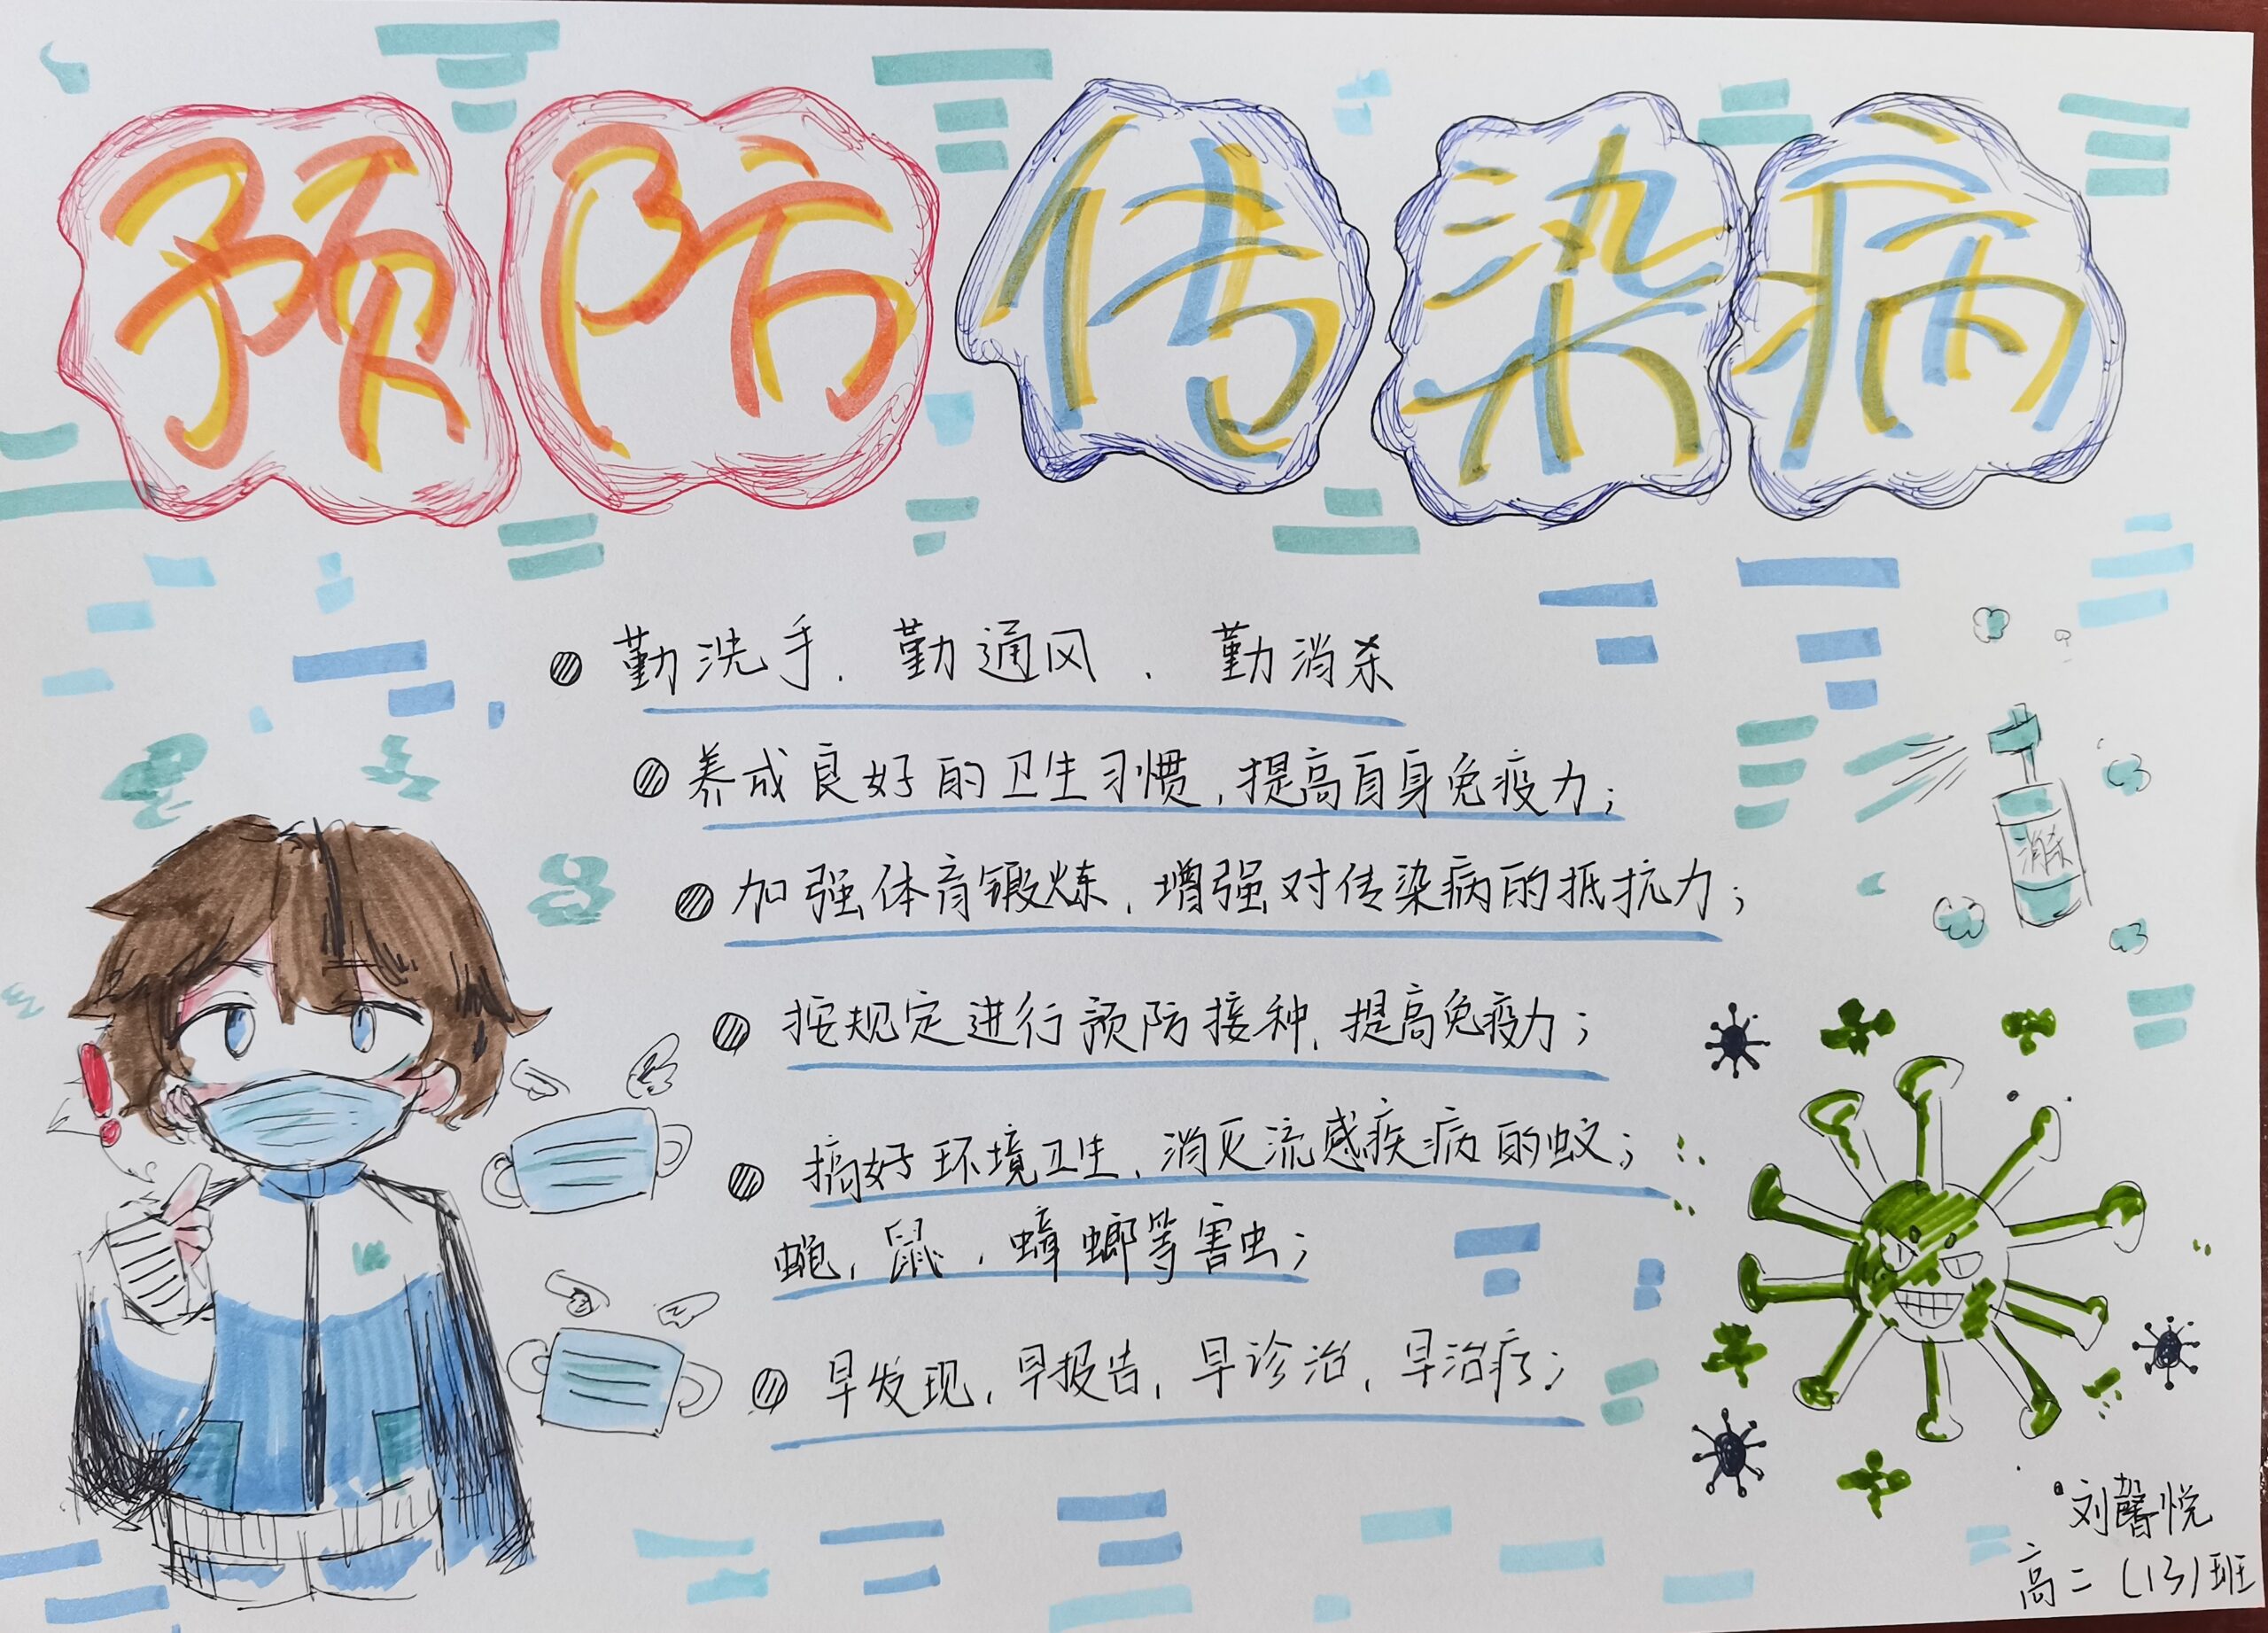 预防传染病
勤洗手、勤通风、勤消杀
养成良好的卫生习惯,提高自身免疫力;
加强体育锻炼,增强对传染病的抵抗力;
消杀
按规定进行预防接种,提高免疫力;
搞好环境卫生,消灭流感疾病的蚊;
蝇,鼠,蟑螂等害虫;
早发现,早报告,早诊治,早治疗;
刘馨悦
高二(13)班